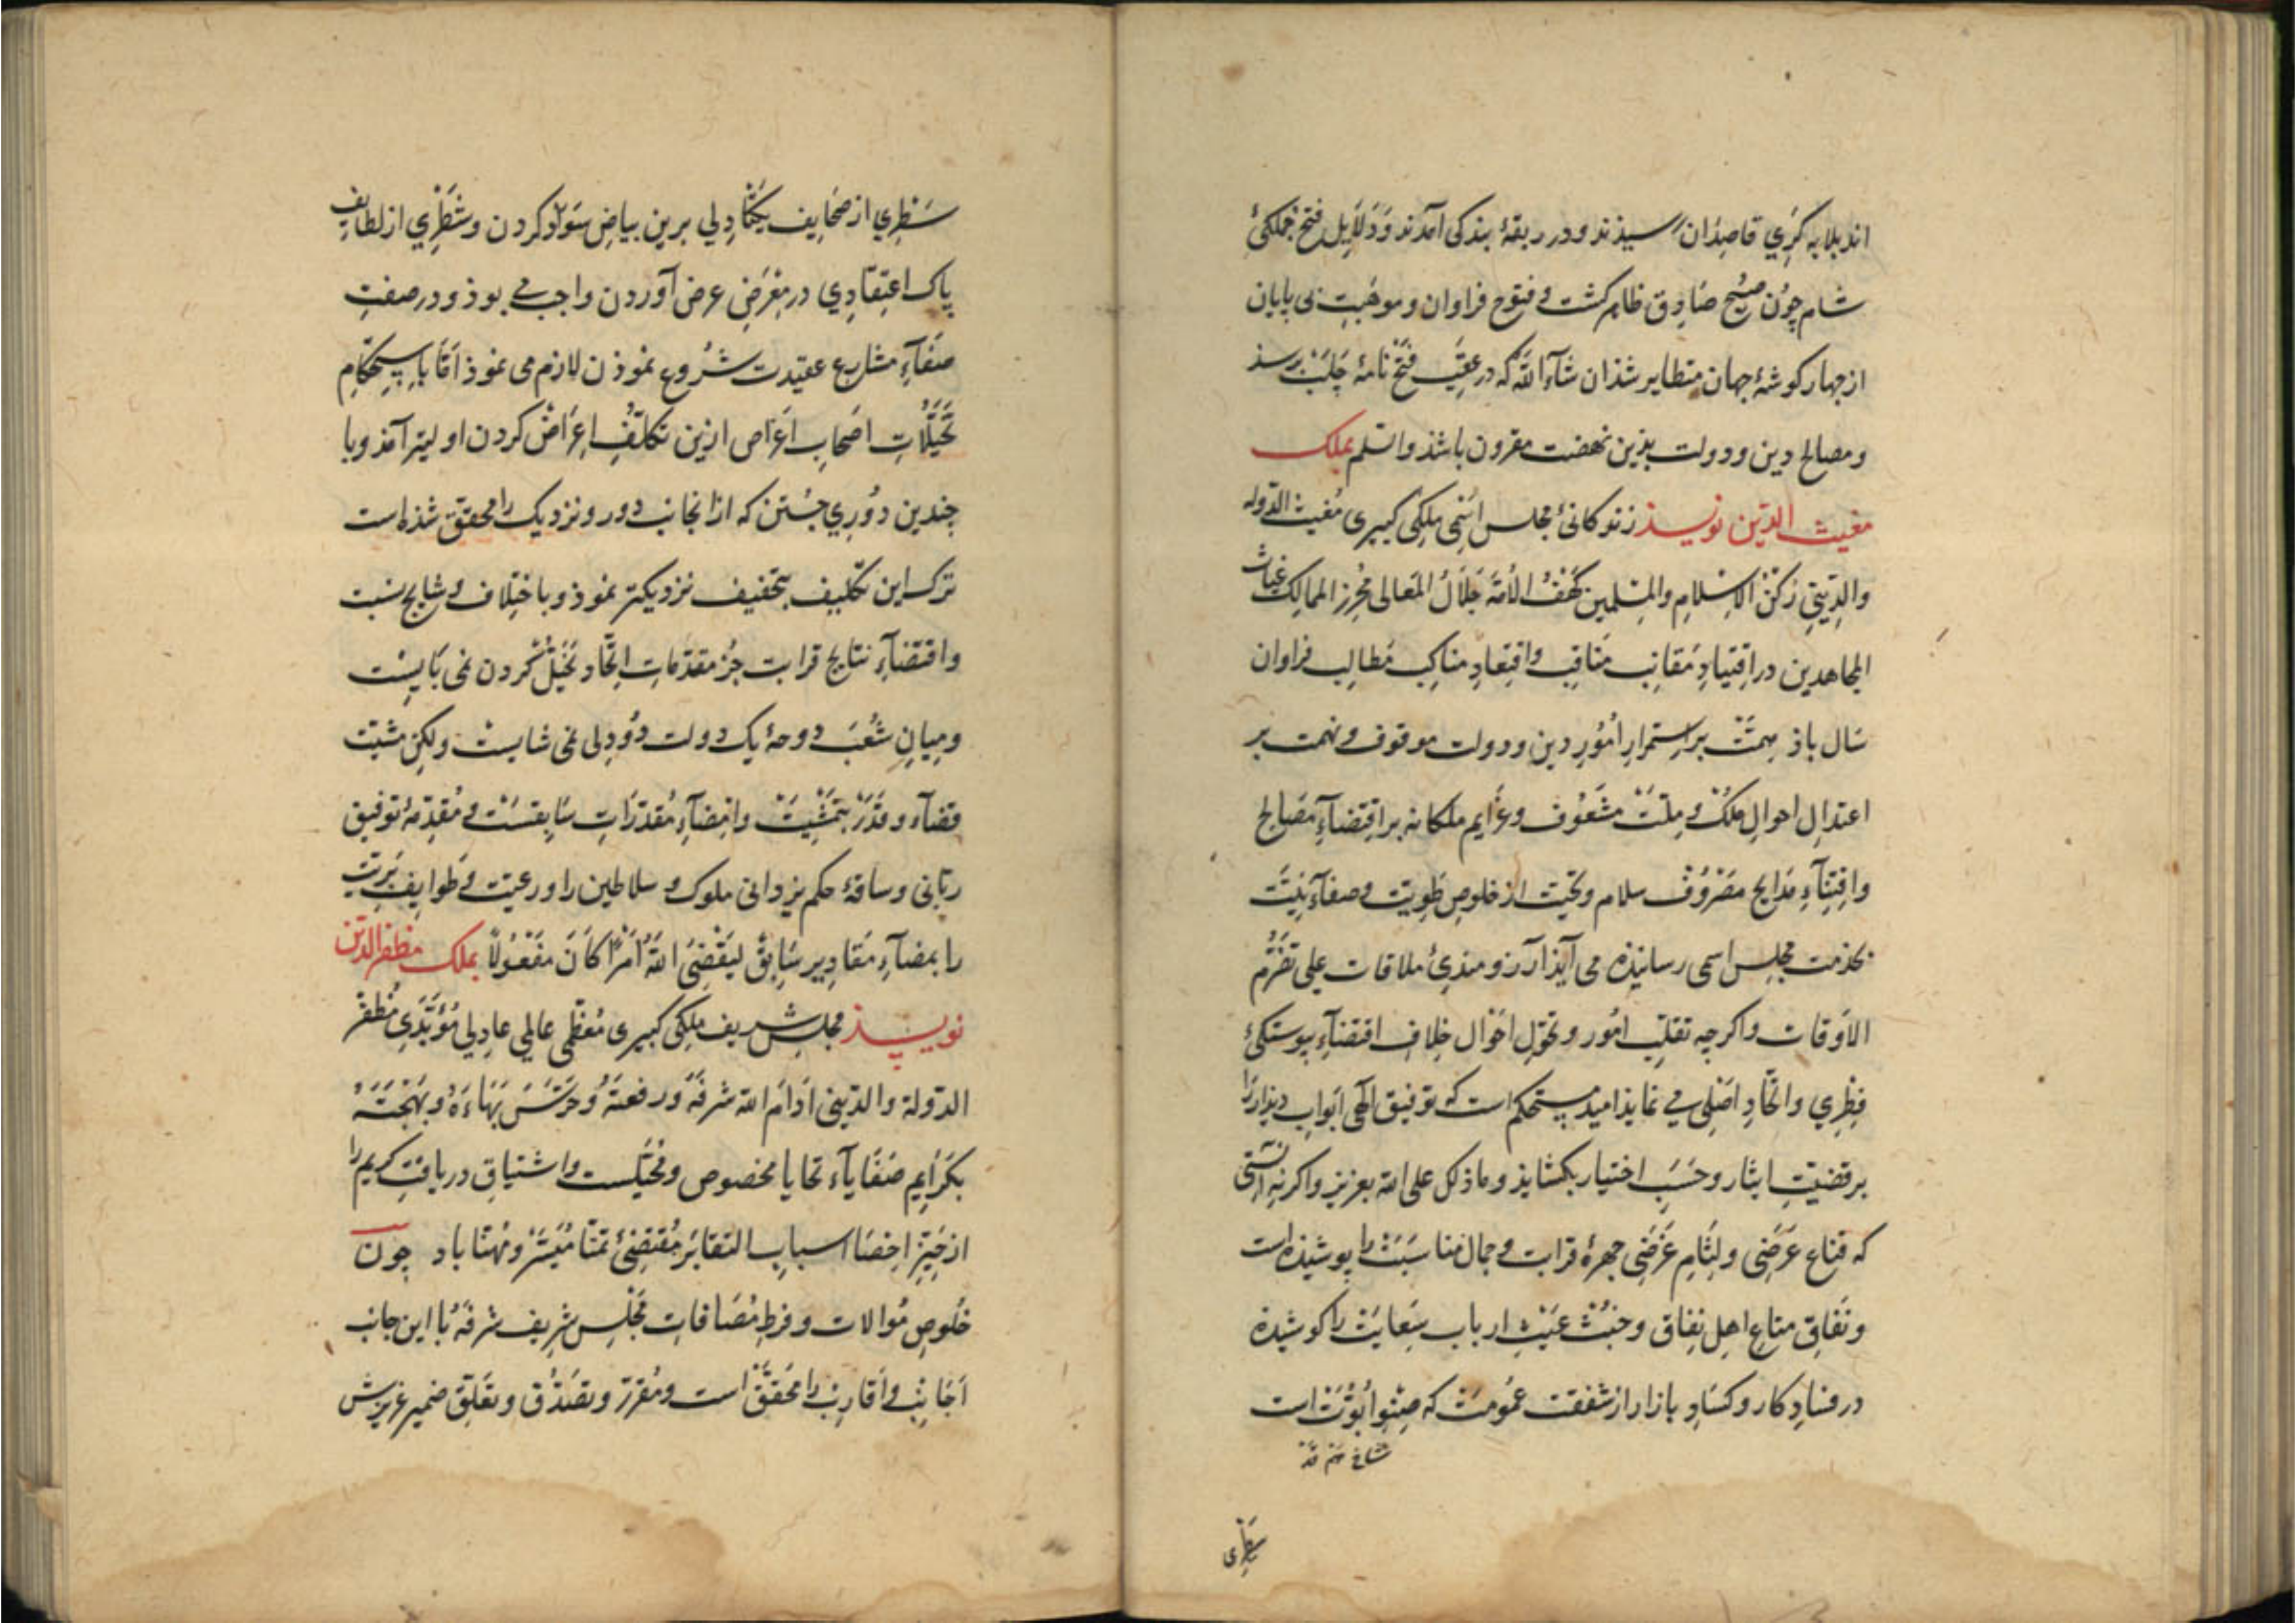 اند بلابه کری قاصدان رسیدند و در ربقهٔ بندکی آمدند و دلایل فتح جملکی
شام چون صبح صادق ظاهر کشت و فتوح فراوان و موهبت بی پایان
از چهار کوشهٔ جهان متطایر شد ان شآء الله که در عقب فتح نامهٔ حلب برسذ
و مصالح دین و دولت بذین نهضت مقرون باشذ والسلم بملک
مغیث الدین نویسذ زندکانی مجلس اسمی ملکی کبیری مغیث الدوله
والدینی رکن الاسلام والمسلمین کهف الامة جلال المعالی محرز الممالک غیاث
المجاهدین در اقتیاد مقانب مناقب و اقتعاد مناکب مطالب فراوان
سال باذ همت بر استمرار امور دین و دولت موقوف و نهمت بر
اعتدال احوال ملک و ملت مشعوف و عزایم ملکانه بر اقتضآء مصالح
و اقتنآء مدایح مصروف سلام و تحیت از خلوص طویت و صفآء نیت
بخدمت مجلس اسمی رسانیده می آیذ آرزومندی ملاقات علی تصرم
الاوقات و اکرچه تقلب امور و تحول احوال خلاف اقتضآء پیوستکی
فطری و اتحاد اصلی می نمایذ امید مستحکم است که توفیق الهی ابواب دیدار را
بر قضیت ایثار و حسب اختیار بکشایذ و ما ذلک علی الله بعزیز و اکر نه آنستی
که قناع عرضی و لثام غرضی چهرهٔ قرابت و جمال مناسبت را پوشیذه است
و نفاق متاع اهل نفاق و خبث عیث ارباب سعایت را کوشیده
در فساد کار و کساد بازار از شفقت عمومت که صنو ابوت است
سطری
سطری از صحایف یکتا دلی برین بیاض سواد کردن و شطری از لطایف
پاک اعتقادی در معرض عرض آوردن واجب می بوذ و در صفت
صفآء مشارع عقیدت شروع نموذن لازم می نموذ اما باستحکام
تخیلات اصحاب اغراض ازین تکلف اعراض کردن اولیتر آمذ و با
چندین دوری جستن که از انجانب دور و نزدیک را محقق شذه است
ترک این تکلیف بتخفیف نزدیکتر نموذ و با اختلاف وشایج نسبت
و اقتضآء نتایج قرابت جز مقدمات اتحاد تخیل کردن نمی بایست
و میان شعب دوحهٔ یک دولت دودلی نمی شایست ولکن مشیت
قضآء و قدر بتمشیت و امضآء مقدرات سابقست و مقدمهٔ توفیق
ربانی و ساقهٔ حکم یزدانی ملوک و سلاطین را و رعیت و طوایف بریت
را بمضآء مقادیر سابق لیقضی الله امرا کان مفعولا بملک مظفرالدین
نویسذ مجلس شریف ملکی کبیری معظمی عالمی عادلی مؤیدی مظفر
الدولة والدینی ادام الله شرفه و رفعته و حرس بهاءه و بهجته
بکرایم صفایآء تحایا مخصوص و محیاست و اشتیاق دریافت کریم را
از حیز احصا اسباب التقا بر مقتضی تمنا میسر و مهنا باد چون
خلوص موالات و فرط مصافات مجلس شریف شرفه با این جانب
اجانب و اقارب را محقق است و مقرر و تصدق و تعلق ضمیر عزیزش